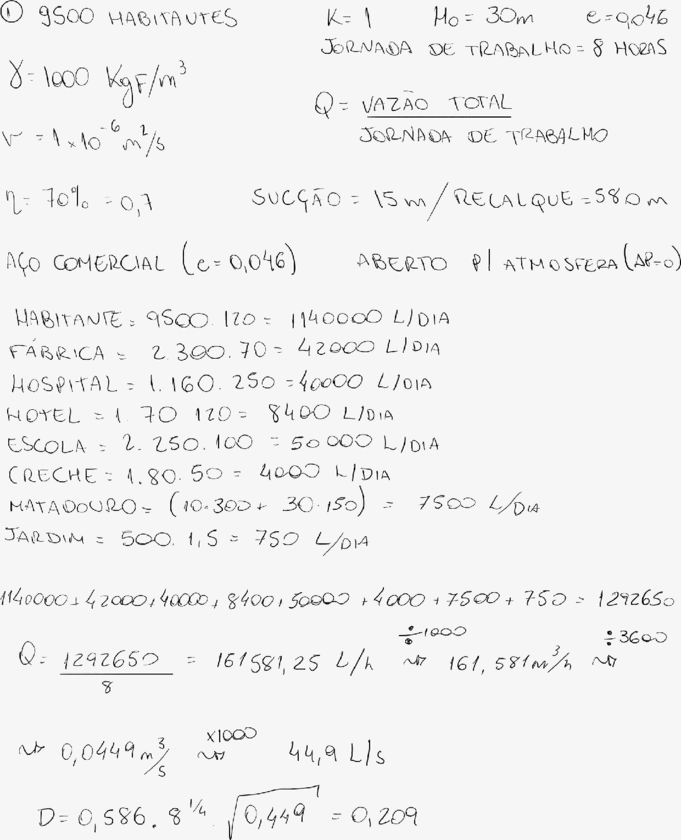 ① 9500 HABITANTES K=1 Ho = 30m e=0,046
JORNADA DE TRABALHO = 8 HORAS
γ=1000 KgF/m³
Q = VAZÃO TOTAL / JORNADA DE TRABALHO
ν = 1×10⁻⁶ m²/s
η = 70% = 0,7 SUCÇÃO = 15m / RECALQUE = 580m
AÇO COMERCIAL (e=0,046) ABERTO P/ ATMOSFERA (ΔP=0)
HABITANTE = 9500.120 = 1140000 L/DIA
FÁBRICA = 2.300.70 = 42000 L/DIA
HOSPITAL = 1.160.250 = 40000 L/DIA
HOTEL = 1.70 120 = 8400 L/DIA
ESCOLA = 2.250.100 = 50000 L/DIA
CRECHE = 1.80.50 = 4000 L/DIA
MATADOURO = (10.300 + 30.150) = 7500 L/DIA
JARDIM = 500.1,5 = 750 L/DIA
1140000 + 42000 + 40000 + 8400 + 50000 + 4000 + 7500 + 750 = 1292650
Q = 1292650 / 8 = 161581,25 L/h ÷1000 ⇝ 161,581 m³/h ÷3600 ⇝
⇝ 0,0449 m³/s ×1000 ⇝ 44,9 L/s
D = 0,586 . 8^1/4 √0,449 = 0,209